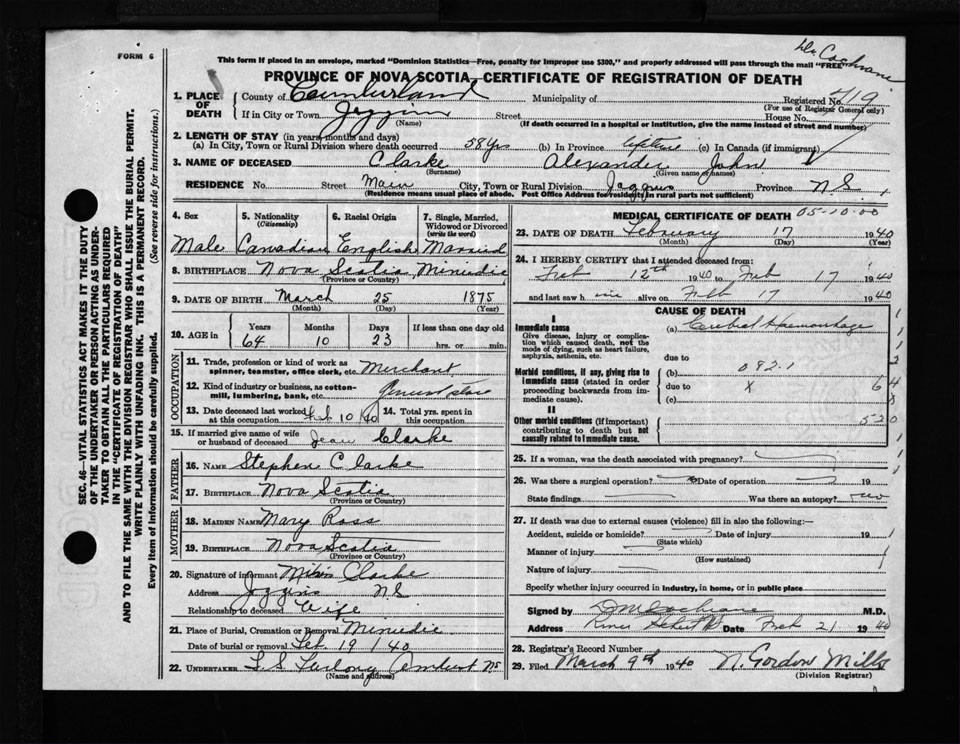 Dr Cochrane
FORM 6
This form if placed in an envelope, marked "Dominion Statistics—Free, penalty for improper use $300," and properly addressed will pass through the mail "FREE"
PROVINCE OF NOVA SCOTIA, CERTIFICATE OF REGISTRATION OF DEATH
1. PLACE OF DEATH
County of Cumberland Municipality of Registered No. 419
(For use of Registrar General only)
If in City or Town Joggins Street House No.
(Name) (If death occurred in a hospital or institution, give the name instead of street and number)
2. LENGTH OF STAY (in years, months and days)
(a) In City, Town or Rural Division where death occurred 58 yrs (b) In Province lifetime (c) In Canada (if immigrant)
3. NAME OF DECEASED Clarke Alexander John
(Surname) (Given name or names)
RESIDENCE No. Street Main City, Town or Rural Division Joggins Province N.S.
(Residence means usual place of abode. Post Office Address for residents in rural parts not sufficient)
4. Sex 5. Nationality (Citizenship) 6. Racial Origin 7. Single, Married, Widowed or Divorced (write the word)
Male Canadian English Married
8. BIRTHPLACE Nova Scotia, Minudie
(Province or Country)
9. DATE OF BIRTH March 25 1875
(Month) (Day) (Year)
10. AGE in Years Months Days If less than one day old
64 10 23 hrs. or min.
OCCUPATION
11. Trade, profession or kind of work as spinner, teamster, office clerk, etc. Merchant
12. Kind of industry or business, as cotton-mill, lumbering, bank, etc. General store
13. Date deceased last worked at this occupation Feb 10/40 14. Total yrs. spent in this occupation
15. If married give name of wife or husband of deceased Jean Clarke
FATHER
16. NAME Stephen Clarke
17. BIRTHPLACE Nova Scotia
(Province or Country)
MOTHER
18. MAIDEN NAME Mary Ross
19. BIRTHPLACE Nova Scotia
(Province or Country)
20. Signature of informant Clarke
Address Joggins N.S.
Relationship to deceased Wife
21. Place of Burial, Cremation or Removal Minudie
Date of burial or removal Feb. 19/40
22. UNDERTAKER Furlong Amherst NS
(Name and address)
MEDICAL CERTIFICATE OF DEATH 05-10-00
23. DATE OF DEATH February 17 1940
(Month) (Day) (Year)
24. I HEREBY CERTIFY that I attended deceased from:
Feb 12th 1940 to Feb 17 1940
and last saw him alive on Feb 17 1940
CAUSE OF DEATH
I
Immediate cause
Give disease, injury or complication which caused death, not the mode of dying, such as heart failure, asphyxia, asthenia, etc.
(a) Cerebral Haemorrhage
due to
Morbid conditions, if any, giving rise to immediate cause (stated in order proceeding backwards from immediate).
(b) 082.1
due to X 64
(c)
II
Other morbid conditions (if important) contributing to death but not causally related to immediate cause.
520
25. If a woman, was the death associated with pregnancy?
26. Was there a surgical operation? Date of operation 19
State findings Was there an autopsy? no
27. If death was due to external causes (violence) fill in also the following:—
Accident, suicide or homicide? Date of injury 19
(State which)
Manner of injury
(How sustained)
Nature of injury
Specify whether injury occurred in industry, in home, or in public place
Signed by DM Cochrane M.D.
Address River Hebert Date Feb 21 1940
28. Registrar's Record Number
29. Filed March 9th 1940 N. Gordon Mills
(Division Registrar)
SEC. 46—VITAL STATISTICS ACT MAKES IT THE DUTY
OF THE UNDERTAKER OR PERSON ACTING AS UNDER-
TAKER TO OBTAIN ALL THE PARTICULARS REQUIRED
IN THE "CERTIFICATE OF REGISTRATION OF DEATH"
AND TO FILE THE SAME WITH THE DIVISION REGISTRAR WHO SHALL ISSUE THE BURIAL PERMIT.
WRITE PLAINLY WITH UNFADING INK. THIS IS A PERMANENT RECORD.
Every item of information should be carefully supplied. (See reverse side for instructions.)